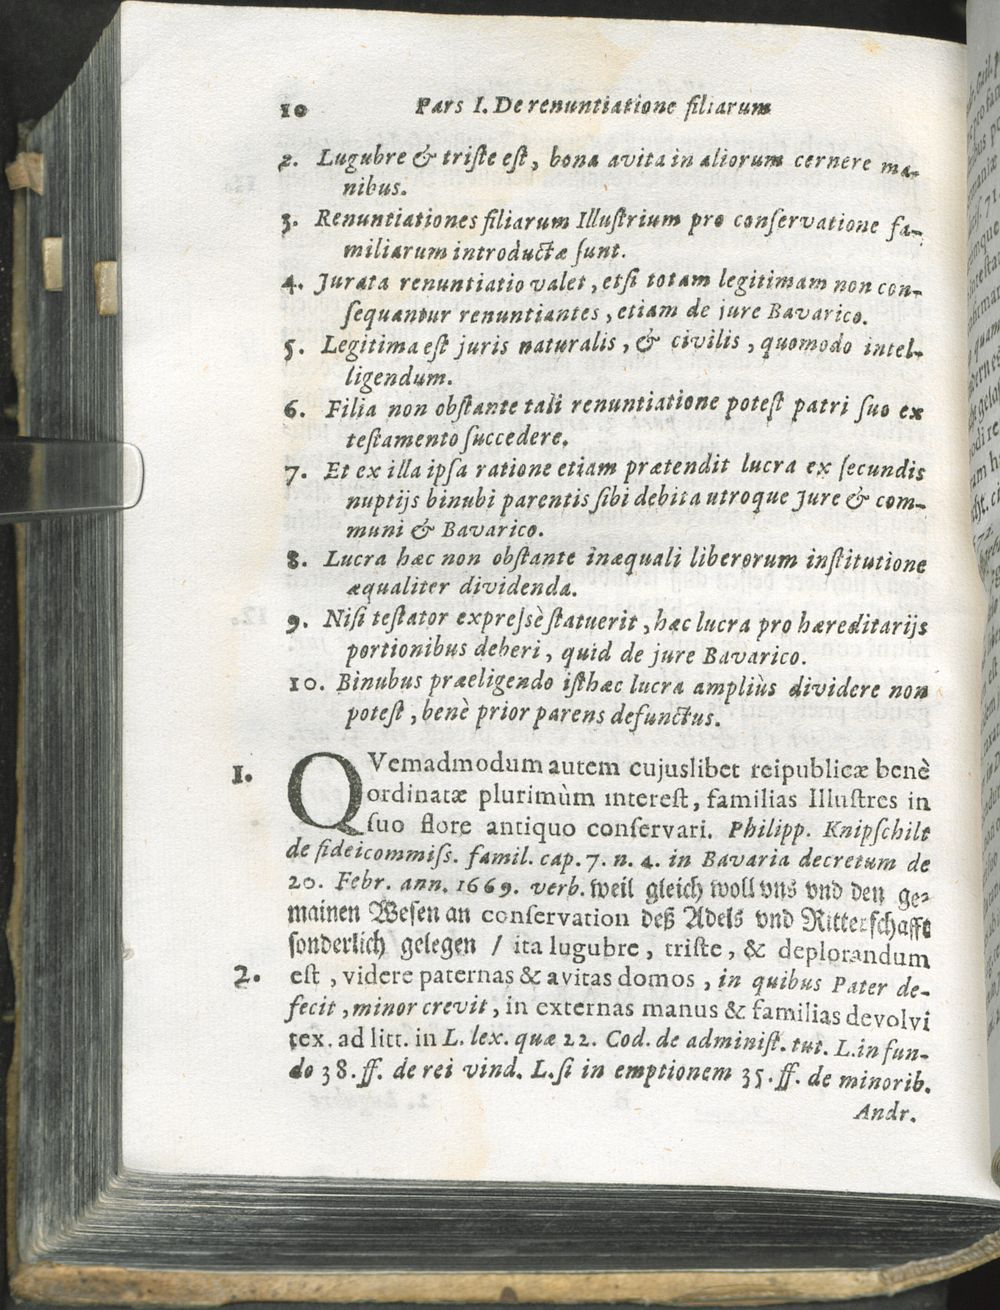 10 Pars I. De renuntiatione filiarum
2. Lugubre & triſte eſt, bona avita in aliorum cernere ma-
nibus.
3. Renuntiationes filiarum Illuſtrium pro conſervatione fa-
miliarum introductæ ſunt.
4. Jurata renuntiatio valet, etſi totam legitimam non con-
ſequantur renuntiantes, etiam de jure Bavarico.
5. Legitima eſt juris naturalis, & civilis, quomodo intel-
ligendum.
6. Filia non obſtante tali renuntiatione poteſt patri ſuo ex
teſtamento ſuccedere.
7. Et ex illa ipſa ratione etiam prætendit lucra ex ſecundis
nuptijs binubi parentis ſibi debita utroque Jure & com-
muni & Bavarico.
8. Lucra hæc non obſtante inæquali liberorum inſtitutione
æqualiter dividenda.
9. Niſi teſtator expreſsè ſtatuerit, hæc lucra pro hæreditarijs
portionibus deberi, quid de jure Bavarico.
10. Binubus præeligendo iſthæc lucra ampliùs dividere non
poteſt, benè prior parens defunctus.
1. QVemadmodum autem cujuslibet reipublicæ benè
ordinatæ plurimùm intereſt, familias Illuſtres in
ſuo flore antiquo conſervari. Philipp. Knipſchilt
de fideicommiſſ. famil. cap. 7. n. 4. in Bavaria decretum de
20. Febr. ann. 1669. verb. weil gleich woll vns vnd den ge-
mainen Weſen an conſervation deß Adels vnd Ritterſchafft
ſonderlich gelegen / ita lugubre, triſte, & deplorandum
2. eſt, videre paternas & avitas domos, in quibus Pater de-
fecit, minor crevit, in externas manus & familias devolvi
tex. ad litt. in L. lex. quæ 22. Cod. de adminiſt. tut. L. in fun-
do 38. ff. de rei vind. L. ſi in emptionem 35. ff. de minorib.
Andr.